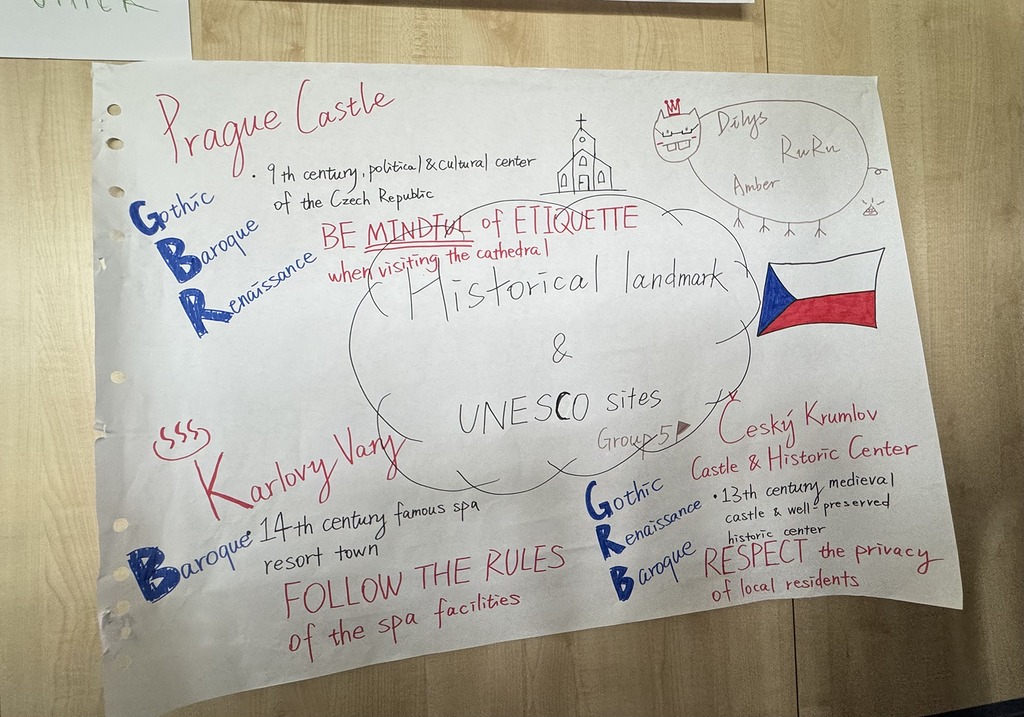 Prague Castle
· 9th century, political & cultural center
of the Czech Republic
Gothic
Baroque
Renaissance
BE MINDFUL of ETIQUETTE
when visiting the cathedral
Dilys
RuRu
Amber
Historical landmark
&
UNESCO sites
Group 5
Karlovy Vary
Baroque
· 14th century famous spa
resort town
FOLLOW THE RULES
of the spa facilities
Český Krumlov
Castle & Historic Center
Gothic
Renaissance
Baroque
· 13th century medieval
castle & well-preserved
historic center
RESPECT the privacy
of local residents